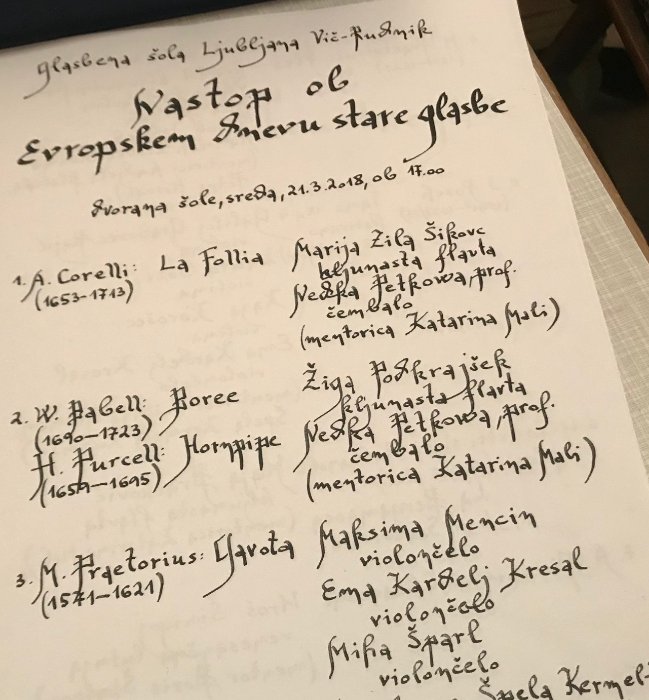 Glasbena šola Ljubljana Vič-Rudnik
Nastop ob
Evropskem dnevu stare glasbe
dvorana šole, sreda, 21.3.2018, ob 17.00
1. A. Corelli: La Follia
(1653-1713)
Marija Zila Šikovc
kljunasta flavta
Nedka Petkova, prof.
čembalo
(mentorica Katarina Mali)
2. W. Babell: Boree
(1690-1723)
H. Purcell: Hornpipe
(1659-1695)
Žiga Podkrajšek
kljunasta flavta
Nedka Petkova, prof.
čembalo
(mentorica Katarina Mali)
3. M. Praetorius: Gavota
(1571-1621)
Maksima Mencin
violončelo
Ema Kardelj Kresal
violončelo
Miha Šparl
violončelo
Špela Kermel-